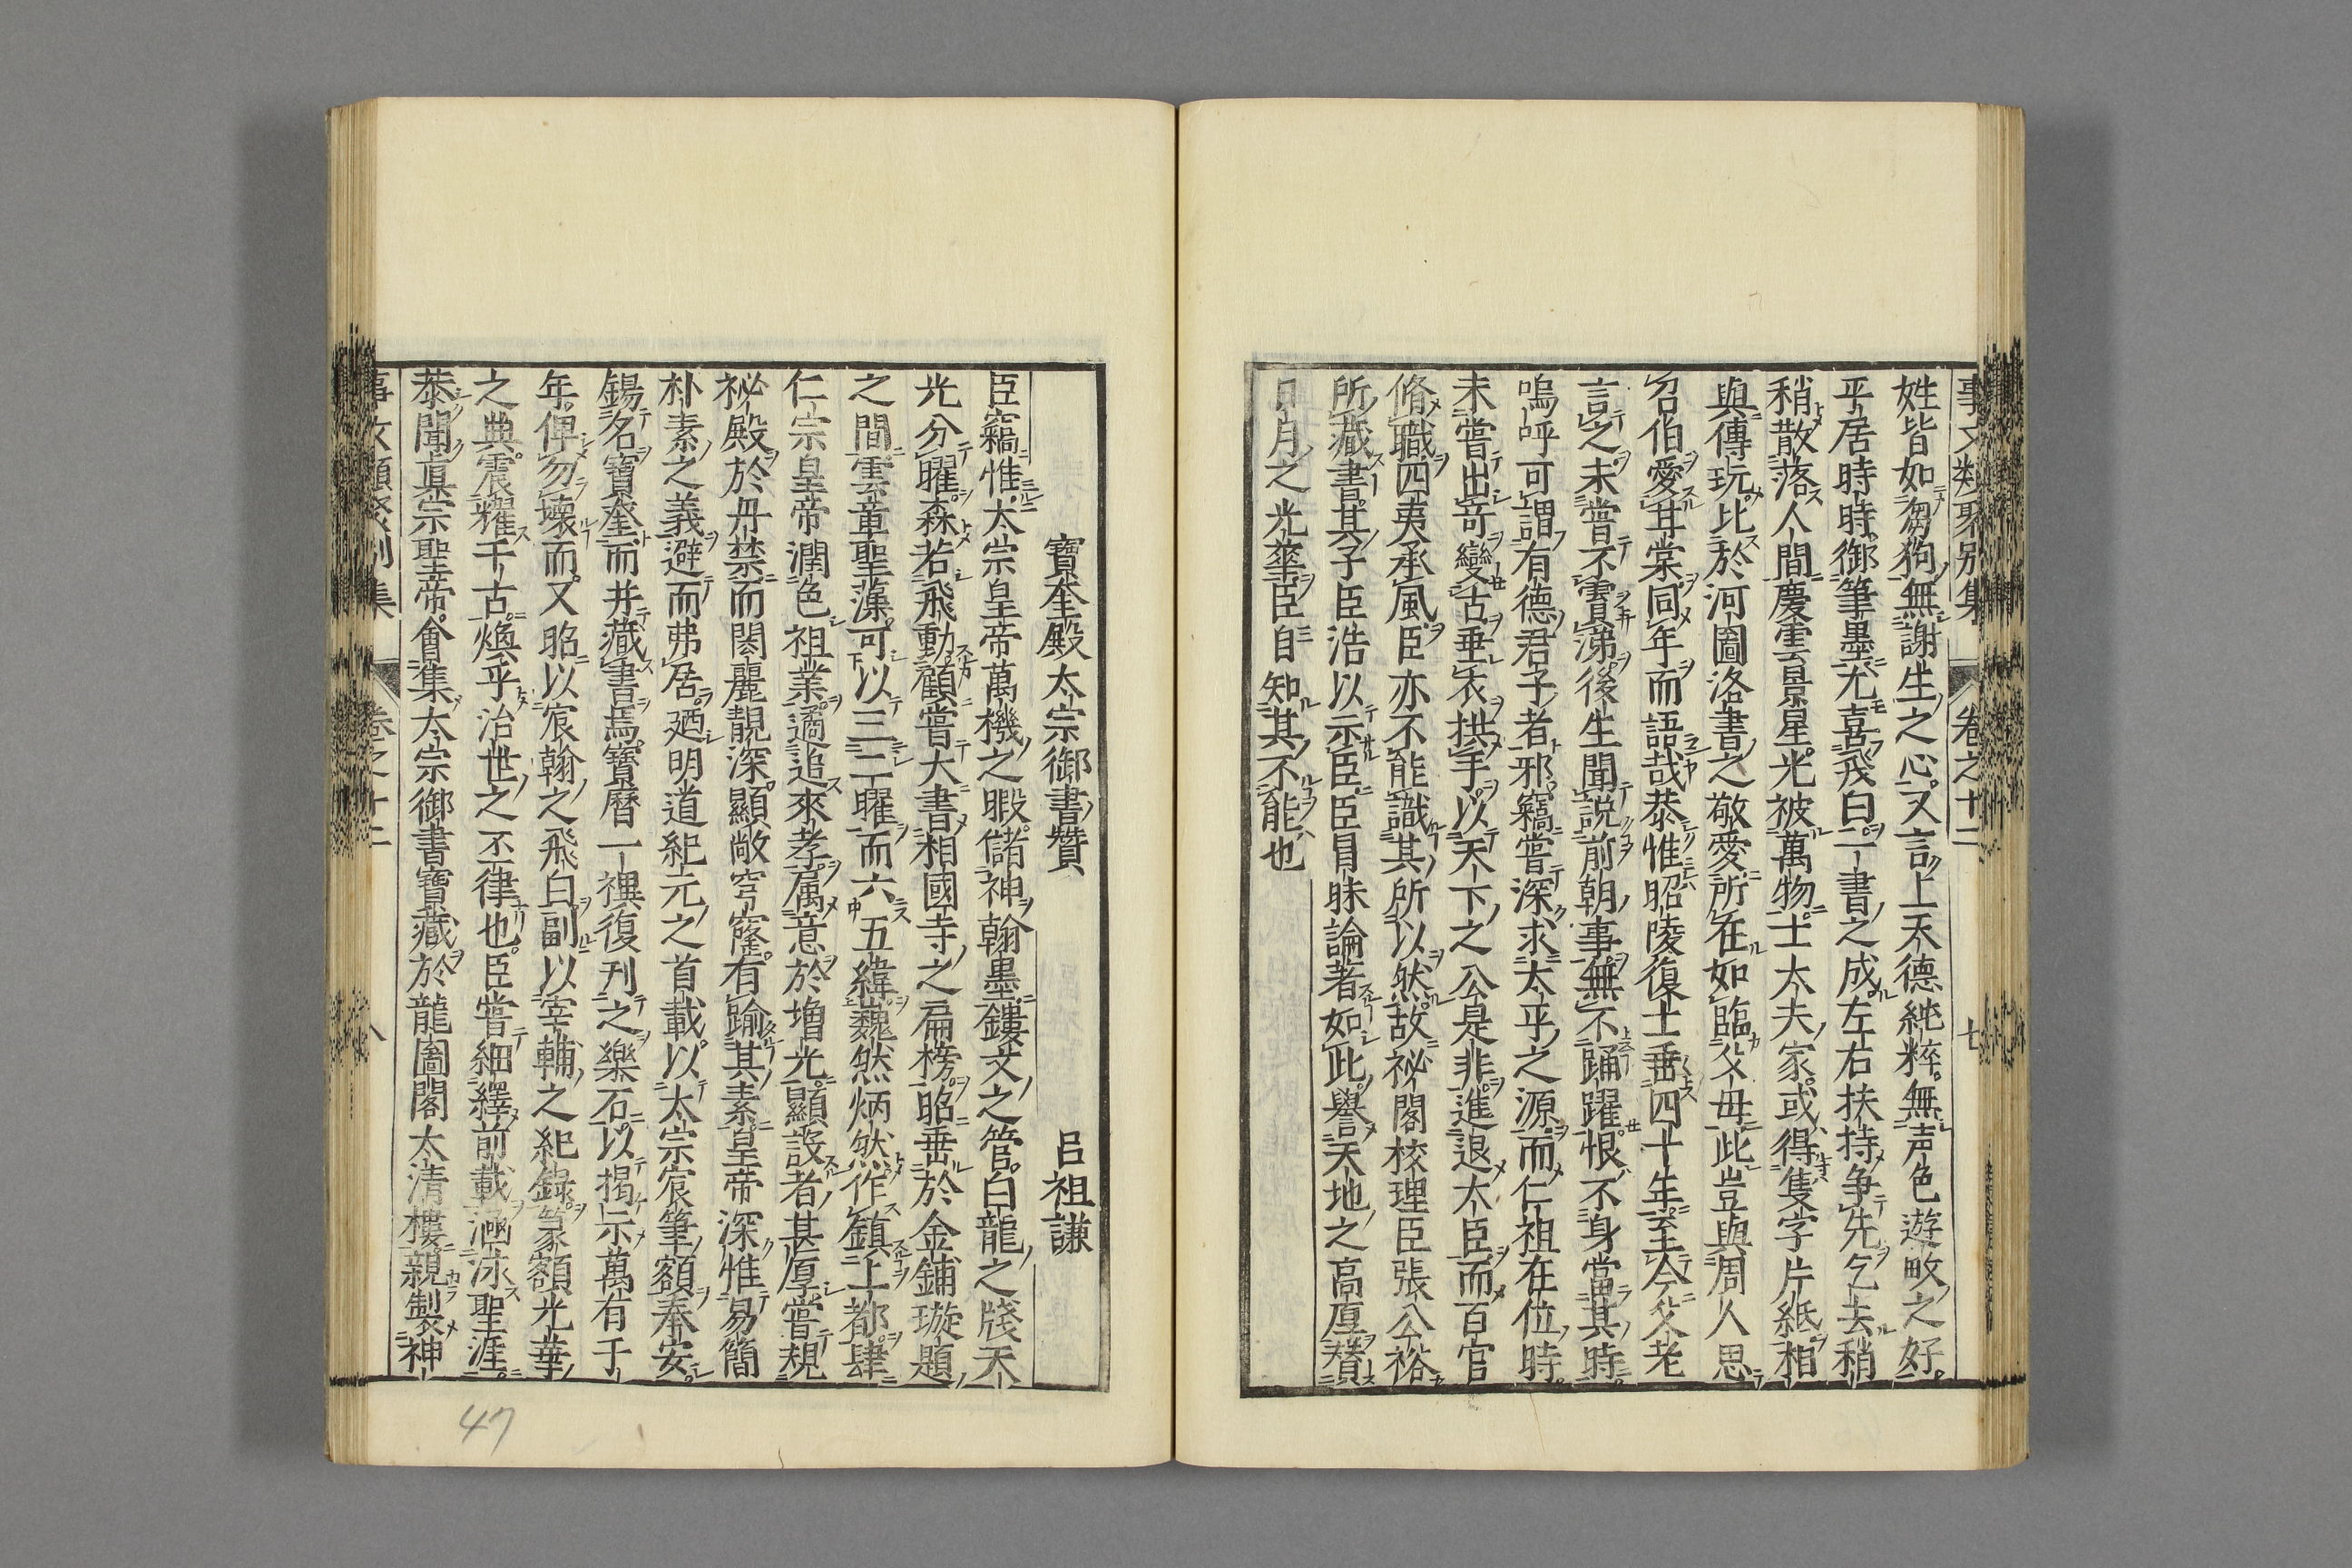 事文類聚别集 卷之十二 七
姓皆如芻狗無謝生之心又言上天德純粹無声色遊畋之好
平居時時御筆墨尤喜飛白一書之成左右扶持争先乞去稍
稍散落人間慶雲景星光被萬物士太夫家或得隻字片紙相
與傳玩比於河圖洛書之敬愛所在如臨父母此豈與周人思
召伯愛甘棠同年而語哉恭惟昭陵復土垂四十年至今父老
言之未嘗不霣涕後生聞說前朝事無不踊躍恨不身當其時
嗚呼可謂有德君子者邪竊嘗深求太平之源而仁祖在位時
未嘗出奇變古垂衣拱手以天下之公是非進退大臣而百官
脩職四夷承風臣亦不能識其所以然故祕閣校理臣張公裕
所藏書其子臣浩以示臣臣昌昧論著如此譽天地之高厚賛
日月之光華臣自知其不能也
寶奎殿太宗御書贊 吕祖謙
臣竊惟太宗皇帝萬機之暇儲神翰墨鏤文之管白龍之牋天
光分曜森若飛動顧嘗大書相國寺之扁榜昭垂於金鋪璇題
之間雲章聖藻可以三二曜而六五緯巍然炳然作鎮上都肆
仁宗皇帝潤色祖業遹追來孝属意於增光顯設者甚厚嘗規
祕殿於丹禁而閎麗靚深顯敞穹窿有踰其素皇帝深惟易簡
朴素之義避而弗居廼明道紀元之首載以太宗宸筆額奉安
錫名寶奎而并藏書焉寶曆一禩復刋之樂石以揭示萬有千
年俾勿壊而又昭以宸翰之飛白副以宰輔之紀錄篆額光華
之典震耀千古煥乎治世之丕律也臣嘗細繹前載涵泳聖涯
恭聞眞宗聖帝會集太宗御書寶藏於龍圖閣太清樓親製神
事文類聚别集 卷之十二 八
47